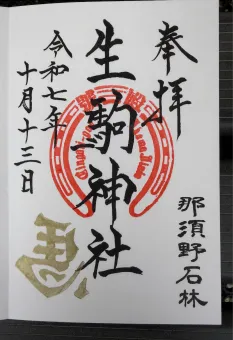 奉拝
生駒神社
令和七年
十月十三日
那須野石林
馬